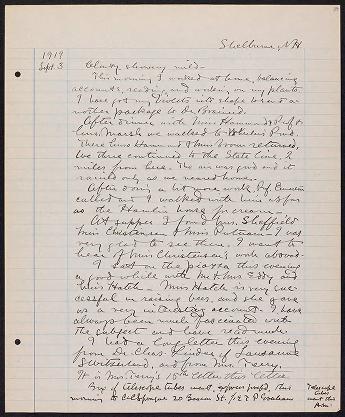 Shelburne, N.H.
1919
Sept. 3
Cloudy showery mild -
This morning I worked at home, balancing
accounts, reading and working on my plants.
I have got my Violets into shape to send a-
nother package to Dr. Brainerd.
After dinner with Miss Hammond &
Mrs. Marsh we walked to Pond.
There Miss Hammond & Miss returned,
we three continued to the State Line, 2
miles from here. The air was good and it
rained only as we neared home.
After doing a bit more work, Prof.
called and I walked with him as far
as the house for cream.
At supper I found Mrs. Sheffield
Miss Christensen & Miss Putnam. I was
very glad to see them. I want to
hear of Miss Christensen's work abroad.
I sat on the piazza this evening
a good while with Mr. & Mrs. Eddy and
Miss Hatch - Miss Hatch is very suc-
cessful in raising bees, and she gave
us a very interesting account. I have
always been much fascinated with
the subject and have read much.
I had a long letter this evening
from Dr. Chas. Lindes of Lausanne
Switzerland, and from Mrs. Terry.
It is Mrs. Terry's 15th letter this
Box of telescope tubes sent, express prepd, this
morning to 20 Beacon St.
Telescope
tubes
sent this